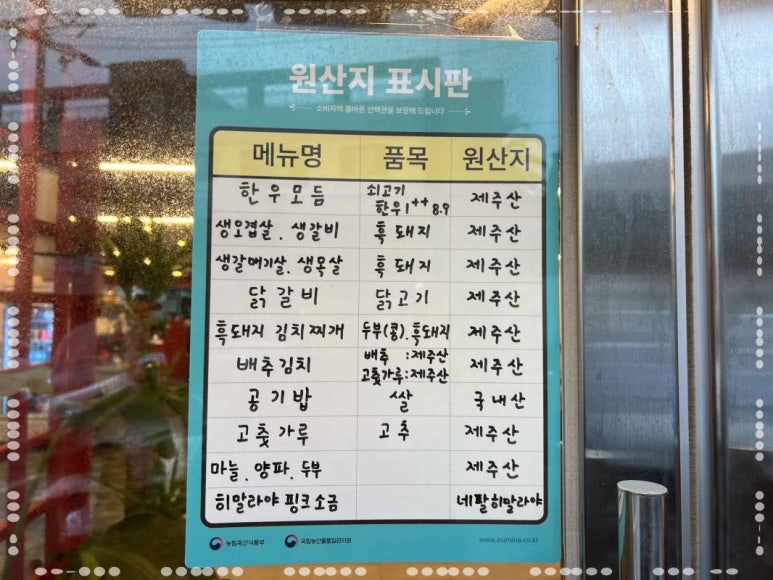 원산지 표시판
소비자의 올바른 선택권을 보장해 드립니다
메뉴명 품목 원산지
한우모듬 쇠고기 한우1++ 8.9 제주산
생오겹살. 생갈비 흑돼지 제주산
생갈매기살. 생목살 흑돼지 제주산
닭갈비 닭고기 제주산
흑돼지 김치찌개 두부(콩). 흑돼지 제주산
배추김치 배추 :제주산 고춧가루:제주산 제주산
공기밥 쌀 국내산
고춧가루 고추 제주산
마늘. 양파. 두부 제주산
히말라야 핑크소금 네팔히말라야
농림축산식품부 국립농산물품질관리원 www.asimina.co.kr